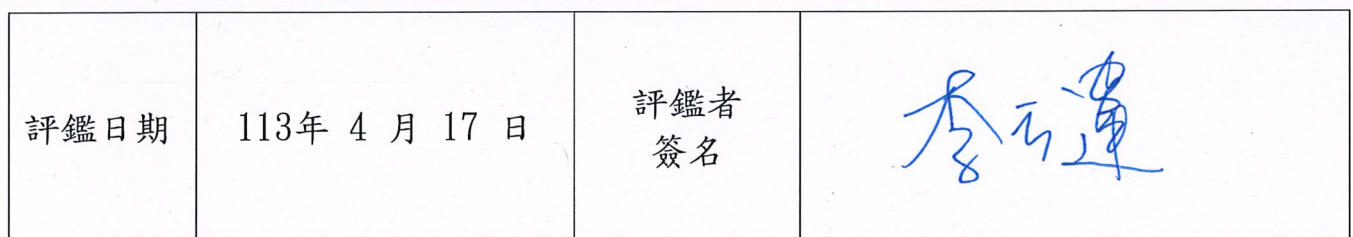 評鑑日期
113年 4 月 17 日
評鑑者
簽名
李